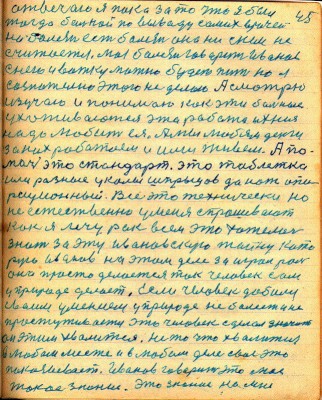 45
отвечаю я пока за то это я был
тогда больной по выводу самих врачей
но болезн есть болезн она ни с кем не
считается. Моя болезн говорит Иванов
снего и ватку можно будет пит но я
сознателно этого не делаю А смотрю
изучаю и понимаю как эти больные
ухаживаются эта работа ихняя
надо любит ея. А мы любям денги
за них работаем и ими живем. А по-
моч это стандарт. это таблетка
или разные уколи шприцов да нож опи-
рационный. Все это технически но
не естественно у меня спрашивают
как я лечу рак всем это хотелос
знат за эту ивановскую тайну като
рую Иванов на этом деле заиграл рол
она просто делается так человек сам
у природе делает. Если человек добился
своим умением у природе не болет и не
простуживатся это человек сделал значить
он этим хвалится. не то что хвалится
в любом месте и в любом деле свае это
показывает. Иванов говорит это мое
такое знание. Это знание на мне